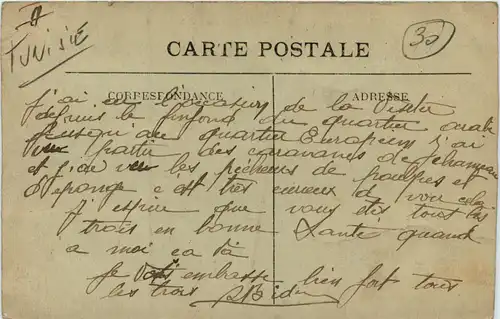 II
TUNISIE
30
CARTE POSTALE
CORRESPONDANCE
ADRESSE
j'ai eu l'occasion de la visiter
depuis le finfond du quartier arabe
jusqu au quartier Européens j'ai
vu partir des caravanes de chameau
et j'ai vu les pêcheurs de poulpes et
d'éponge c est très curieux a voir cela
j espère que vous êtes tout les
trois en bonne Santé quand
a moi ca va
je vous embrasse bien fort tous
les trois